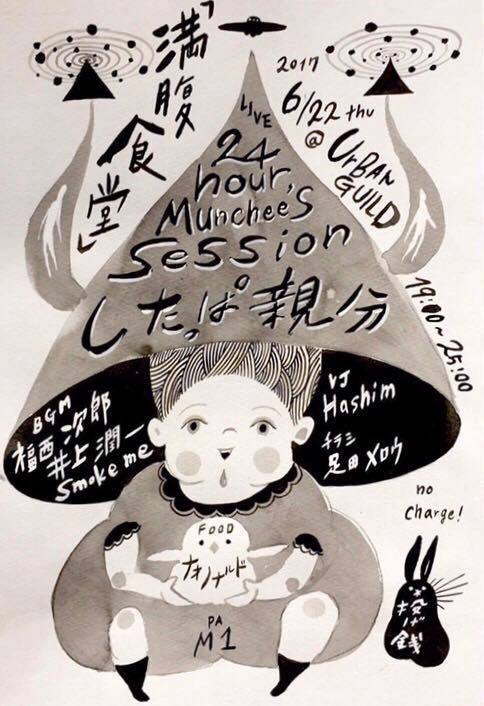 「満腹食堂」
2017
6/22 thu
@ URBAN
GUILD
19:00〜25:00
LIVE
24
hour,
Munchee's
Session
したっぱ親分
BGM
福西次郎
井上潤一
smoke me
VJ
Hashim
チラシ
足田メロウ
FOOD
ナオノナルド
PA
M1
no
charge!
投げ銭